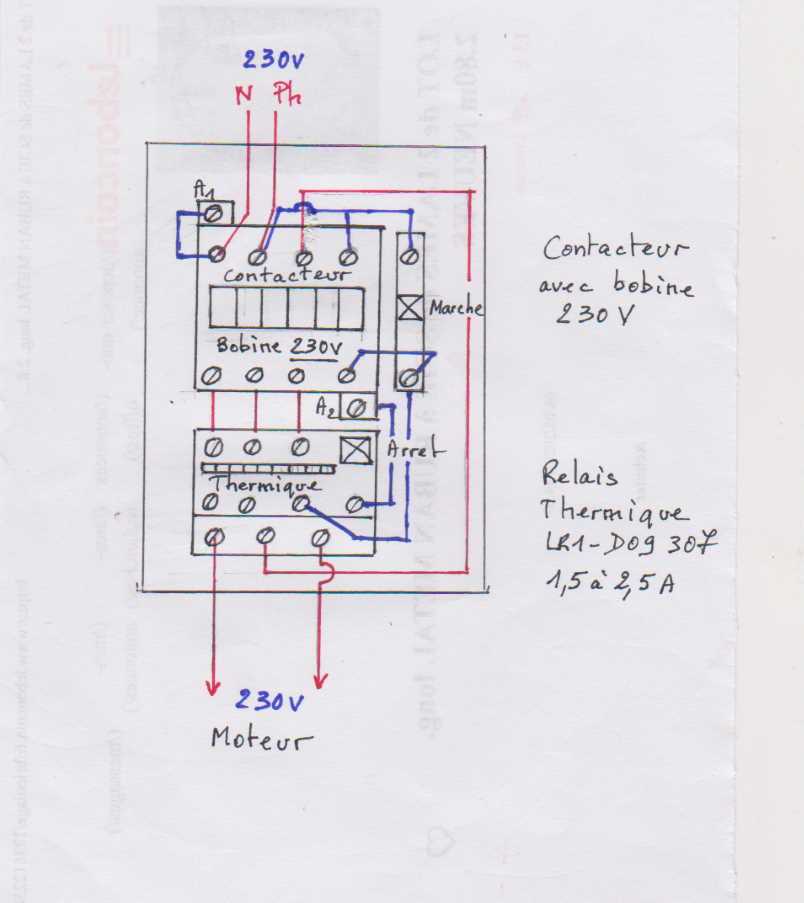 230v
N Ph
A1
Contacteur
Marche
Bobine 230V
A2
Arret
Thermique
230V
Moteur
Contacteur
avec bobine
230V
Relais
Thermique
LR1-D09 307
1,5 à 2,5 A
leboncoin